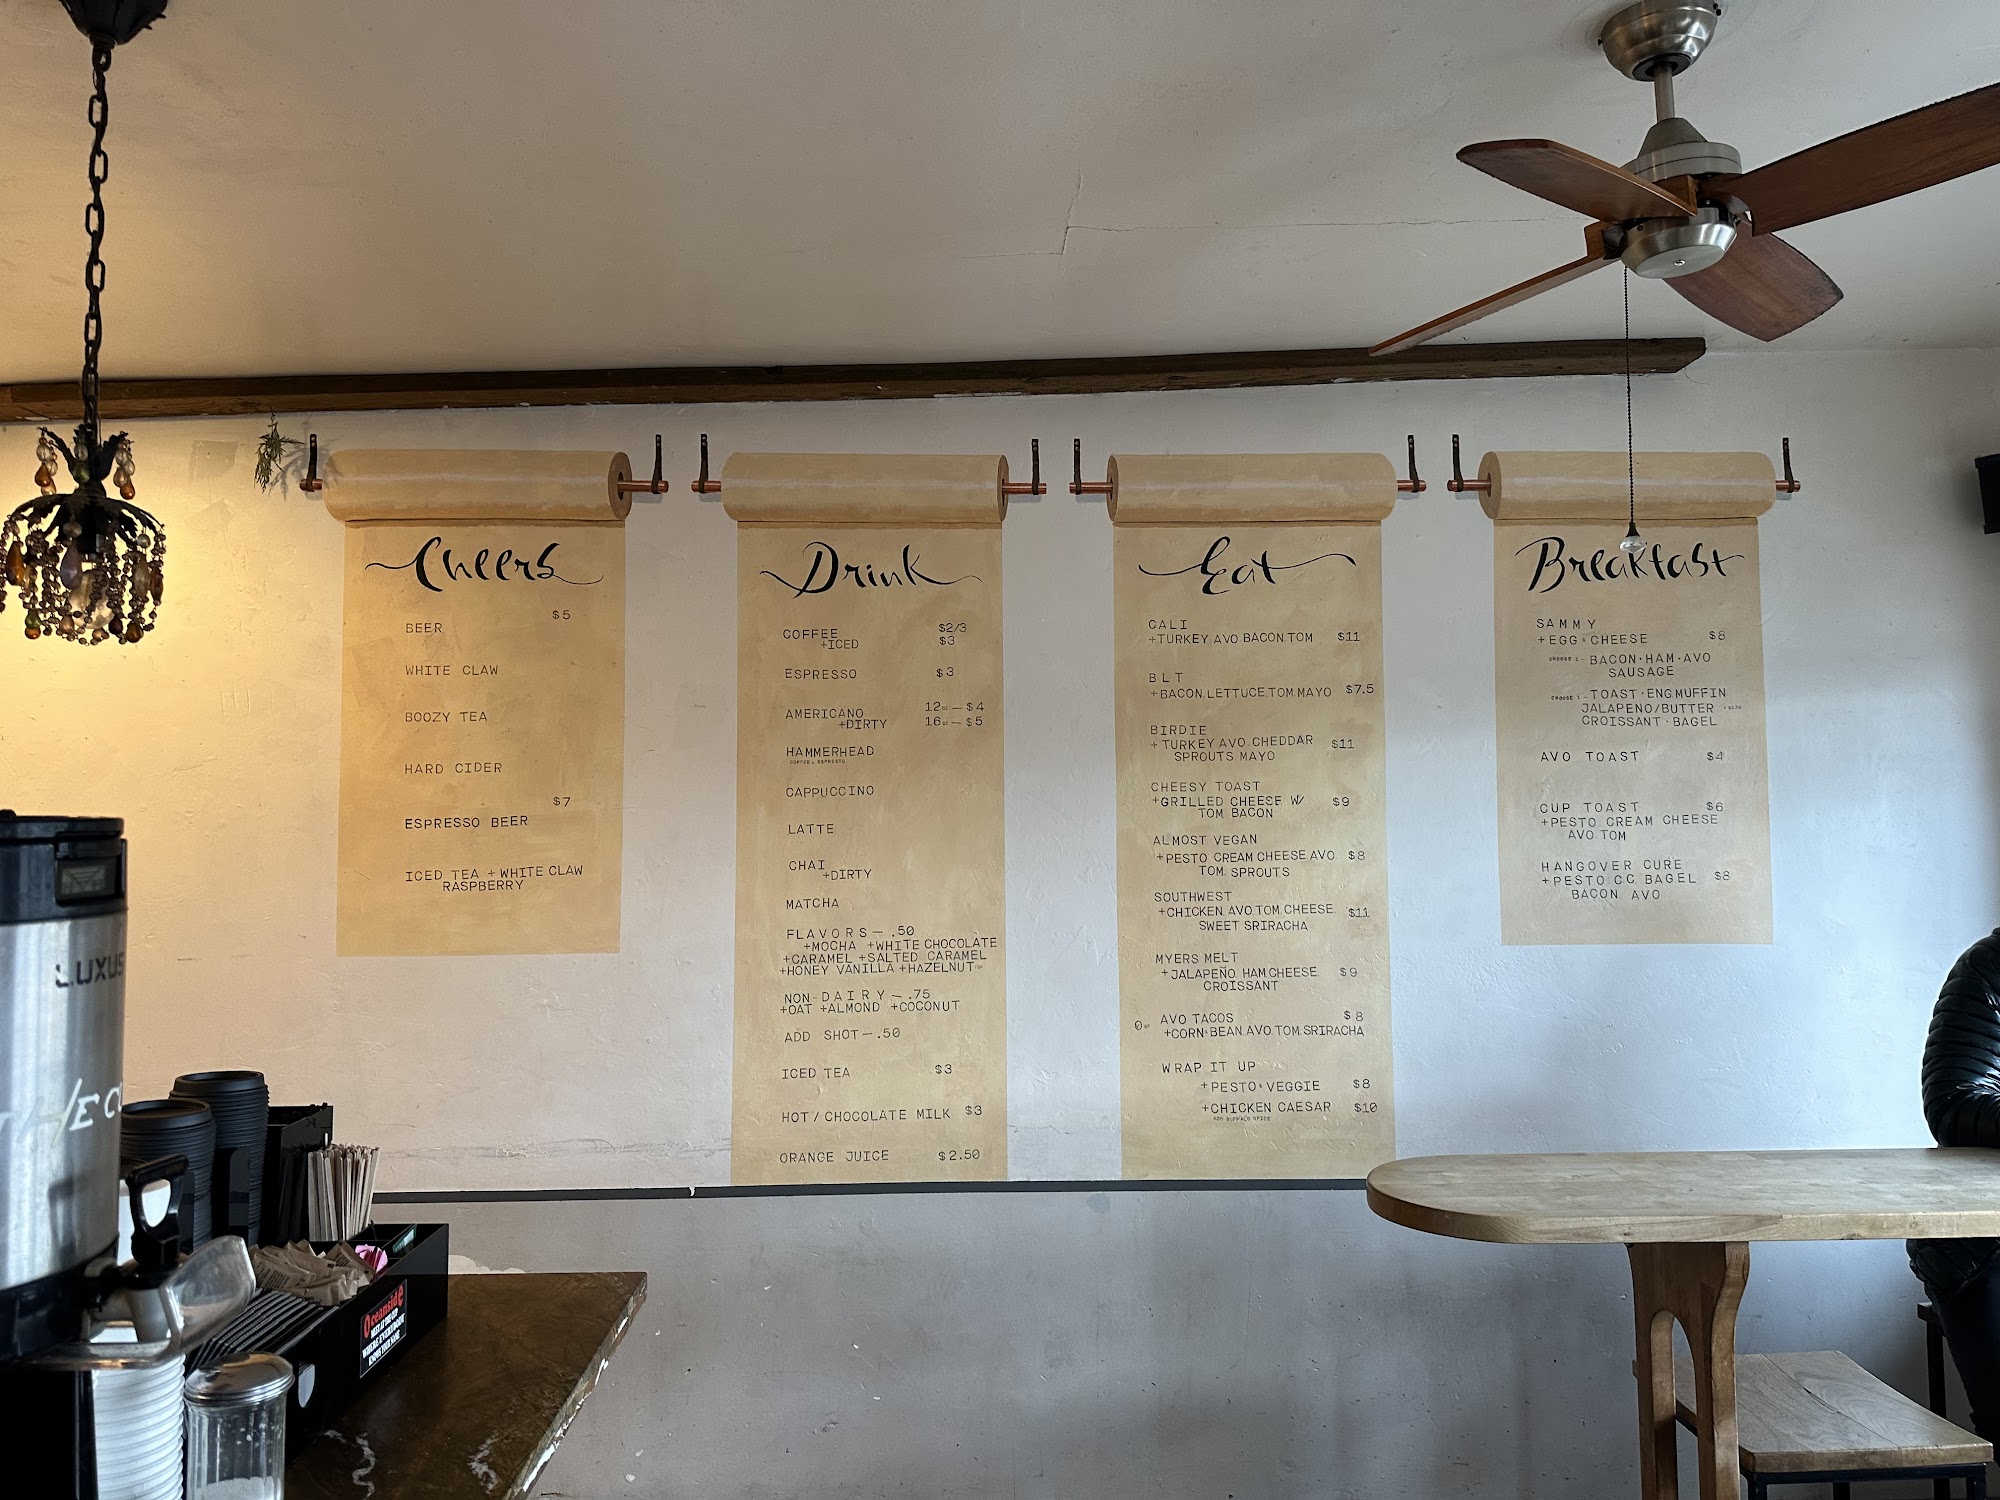 Cheers
$5
BEER
WHITE CLAW
BOOZY TEA
HARD CIDER
$7
ESPRESSO BEER
ICED TEA + WHITE CLAW
RASPBERRY
Drink
COFFEE $2/3
+ICED $3
ESPRESSO $3
AMERICANO 12oz — $4
+DIRTY 16oz — $5
HAMMERHEAD
COFFEE & ESPRESSO
CAPPUCCINO
LATTE
CHAI
+DIRTY
MATCHA
FLAVORS — .50
+MOCHA +WHITE CHOCOLATE
+CARAMEL +SALTED CARAMEL
+HONEY VANILLA +HAZELNUT
NON-DAIRY — .75
+OAT +ALMOND +COCONUT
ADD SHOT — .50
ICED TEA $3
HOT / CHOCOLATE MILK $3
ORANGE JUICE $2.50
Eat
CALI
+TURKEY AVO BACON TOM $11
BLT
+BACON LETTUCE TOM MAYO $7.5
BIRDIE
+TURKEY AVO CHEDDAR $11
SPROUTS MAYO
CHEESY TOAST
+GRILLED CHEESE W/ $9
TOM BACON
ALMOST VEGAN
+PESTO CREAM CHEESE AVO $8
TOM SPROUTS
SOUTHWEST
+CHICKEN AVO TOM CHEESE $11
SWEET SRIRACHA
MYERS MELT
+JALAPEÑO HAM CHEESE $9
CROISSANT
AVO TACOS $8
+CORN & BEAN AVO TOM SRIRACHA
WRAP IT UP
+PESTO & VEGGIE $8
+CHICKEN CAESAR $10
ADD BUFFALO SPICE
Breakfast
SAMMY
+EGG & CHEESE $8
CHOOSE 1 - BACON · HAM · AVO
SAUSAGE
CHOOSE 1 - TOAST · ENG MUFFIN
JALAPENO/BUTTER
CROISSANT · BAGEL
AVO TOAST $4
CUP TOAST $6
+PESTO CREAM CHEESE
AVO TOM
HANGOVER CURE
+PESTO CC BAGEL $8
BACON AVO
LUXUS
THE CU
Oceanside
MEET AT THE CUP
WHERE EVERYBODY
KNOWS YOUR NAME